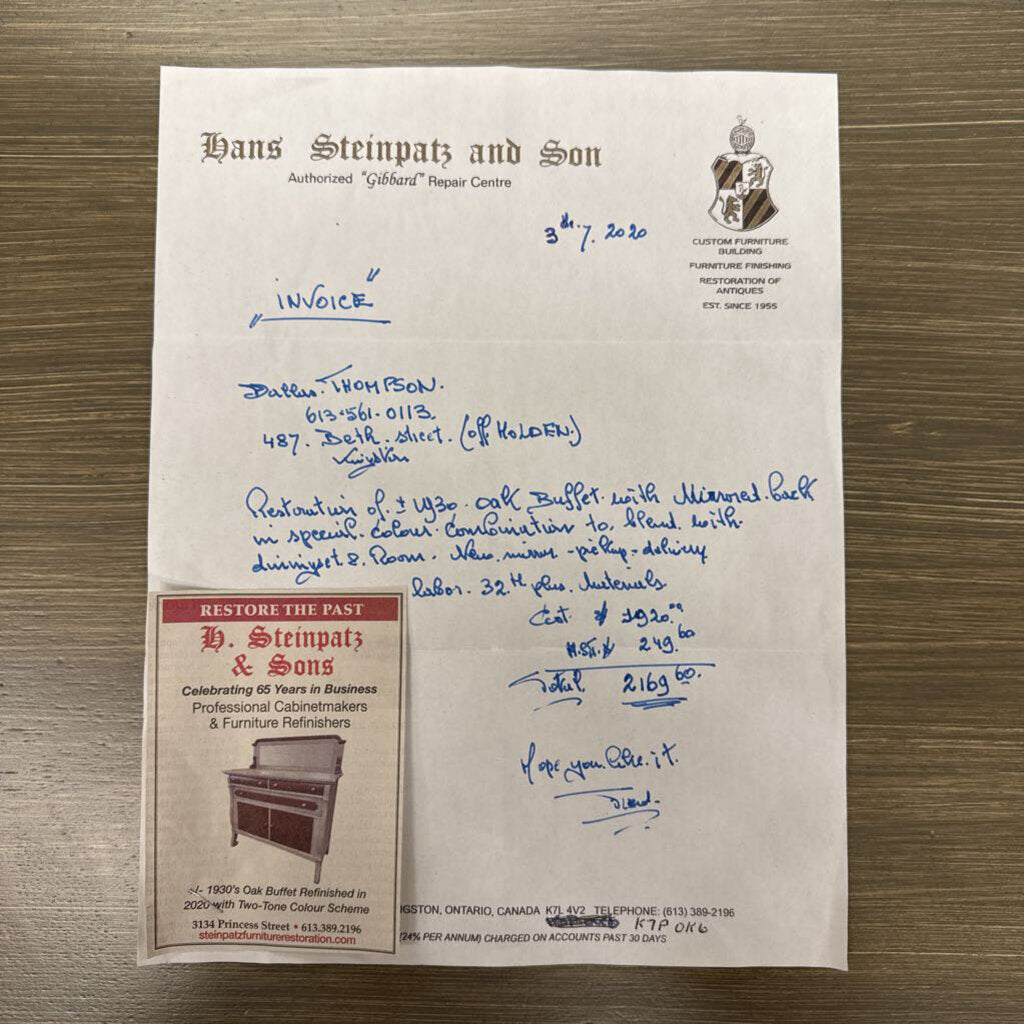 Hans Steinpatz and Son
Authorized "Gibbard" Repair Centre
CUSTOM FURNITURE
BUILDING
FURNITURE FINISHING
RESTORATION OF
ANTIQUES
EST. SINCE 1955
3 th. 7. 2020
"INVOICE"
Dallas. THOMPSON.
613-561-0113.
487. Beth. street. (off. HOLDEN.)
Kingston
Restoration of. ± 1930. oak Buffet. with Mirrored. back
in special. colour. Combination to. blend. with.
diningset & Room. New. mirror - pickup - delivery
labor. 32 H plus. Materials
Cost $ 1920.00
H.S.T. $ 249.60
Total. 2169 60.
Hope you. like. it.
RESTORE THE PAST
H. Steinpatz
& Sons
Celebrating 65 Years in Business
Professional Cabinetmakers
& Furniture Refinishers
+/- 1930's Oak Buffet Refinished in
2020 with Two-Tone Colour Scheme
3134 Princess Street • 613.389.2196
steinpatzfurniturerestoration.com
GSTON, ONTARIO, CANADA K7L 4V2 TELEPHONE: (613) 389-2196
K7P 0K6
(24% PER ANNUM) CHARGED ON ACCOUNTS PAST 30 DAYS